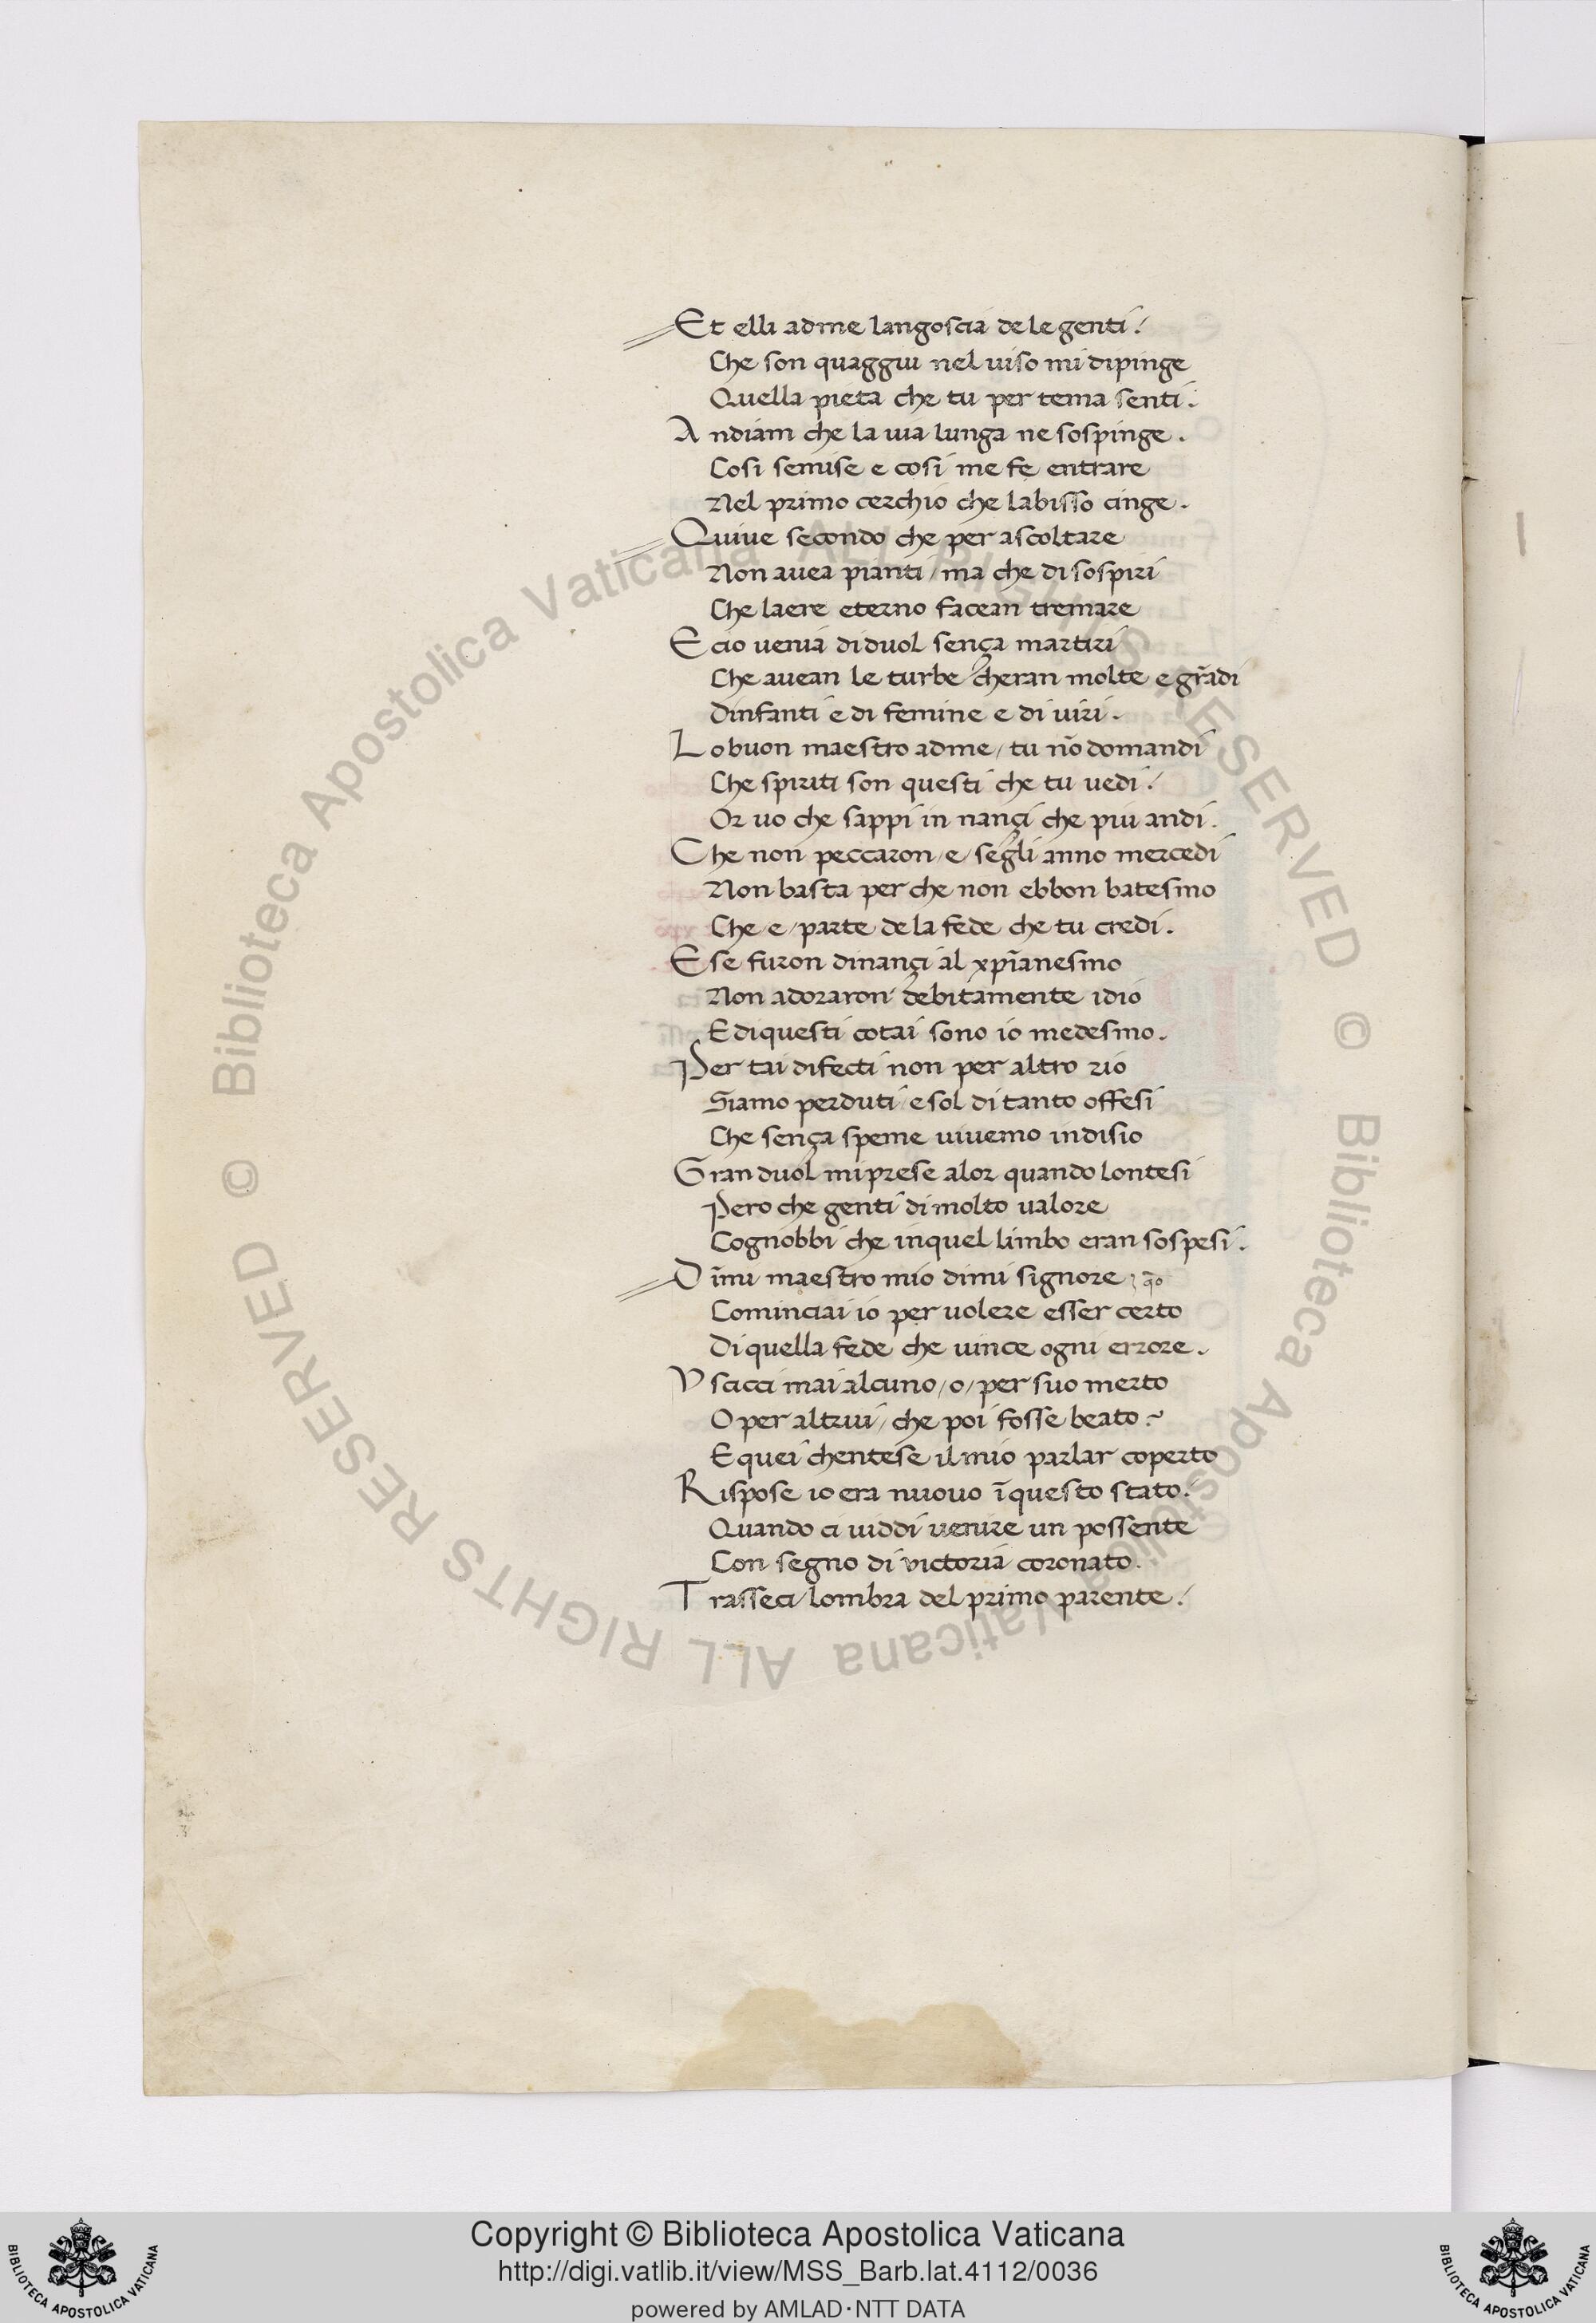 Et elli adme langoscia de le genti /
Che son quaggiu nel uiso mi dipinge
Quella pieta che tu per tema senti .
Andiam che la uia lunga ne sospinge .
Cosi semise e cosi me fe entrare
Nel primo cerchio che labisso cinge .
Quiue secondo che per ascoltare
Non auea pianti / ma che di sospiri
Che laere eterno facean tremare
E cio uenia di duol sença martiri
Che auean le turbe cheran molte e grādi
Dinfanti e di femine e di uiri .
Lo buon maestro adme / tu nō domandi
Che spiriti son questi che tu uedi /
Or uo che sappi in nançi che piu andi .
Che non peccaron / e / segli anno mercedi
Non basta per che non ebbon batesmo
Che e / parte de la fede che tu credi .
E se furon dinançi al xpīanesmo
Non adoraron debitamente idio
E di questi cotai sono io medesmo .
Per tai difecti non per altro rio
Siamo perduti / e sol di tanto offesi
Che sença speme uiuemo indisio
Gran duol mi prese alor quando lontesi
Pero che genti di molto ualore
Cognobbi che inquel limbo eran sospesi .
Dīmi maestro mio dimi signore
Cominciai io per uolere esser certo
Di quella fede che uince ogni errore .
Vscicci mai alcuno / o / per suo merto
O per altrui / che poi fosse beato ?
E quei chentese il mio parlar coperto
Rispose io era nuouo ī questo stato /
Quando ci uiddi uenire un possente
Con segno di victoria coronato .
Trasseci lombra del primo parente /
© Biblioteca Apostolica Vaticana ALL RIGHTS RESERVED © Biblioteca Apostolica Vaticana ALL RIGHTS RESERVED
Copyright © Biblioteca Apostolica Vaticana
http://digi.vatlib.it/view/MSS_Barb.lat.4112/0036
powered by AMLAD·NTT DATA
BIBLIOTECA APOSTOLICA VATICANA
BIBLIOTECA APOSTOLICA VATICANA